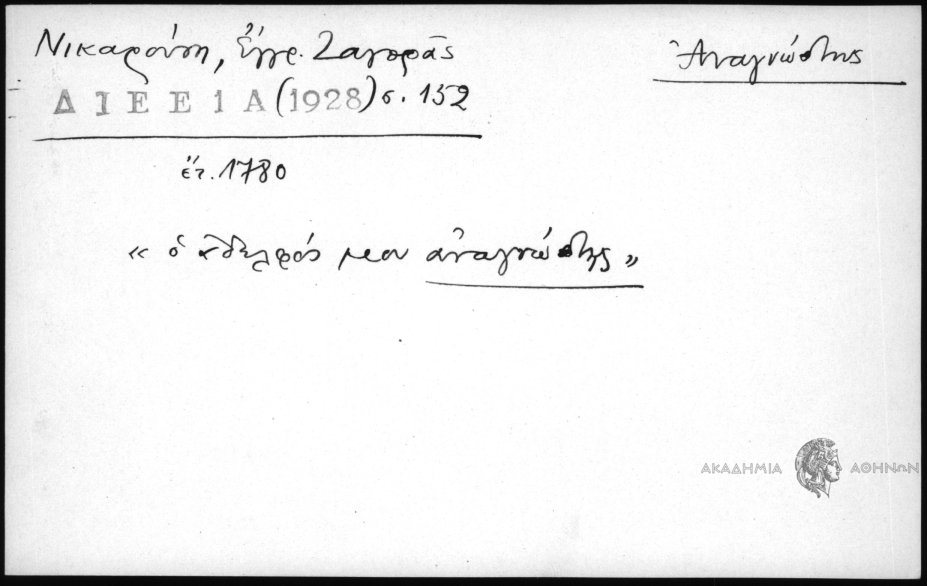 Νικαρούση, Ἔγγρ. Ζαγορᾶς
Ἀναγνώστης
ΔΙΕΕ 1Α (1928) σ. 152
ἔτ. 1780
« ὁ ἀδελφός μου ἀναγνώστης »
ΑΚΑΔΗΜΙΑ ΑΘΗΝΩΝ